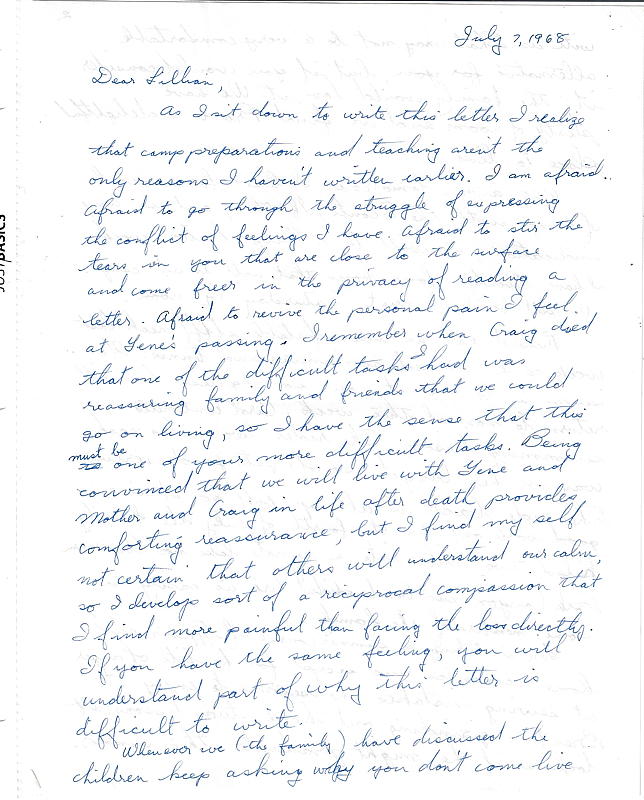 July 7, 1968
Dear Lillian,
As I sit down to write this letter I realize
that camp preparations and teaching aren't the
only reasons I haven't written earlier. I am afraid.
Afraid to go through the struggle of expressing
the conflict of feelings I have. Afraid to stir the
tears in you that are close to the surface
and come freer in the privacy of reading a
letter. Afraid to revive the personal pain I feel
at Gene's passing. I remember when Craig died
that one of the difficult tasks I had was
reassuring family and friends that we could
go on living, so I have the sense that this
must be one of your more difficult tasks. Being
convinced that we will live with Gene and
Mother and Craig in life after death provides
comforting reassurance, but I find my self
not certain that others will understand our calm,
so I develop sort of a reciprocal compassion that
I find more painful than facing the loss directly.
If you have the same feeling, you will
understand part of why this letter is
difficult to write.
Whenever we (the family) have discussed the
children keep asking why you don't come live
BASICS